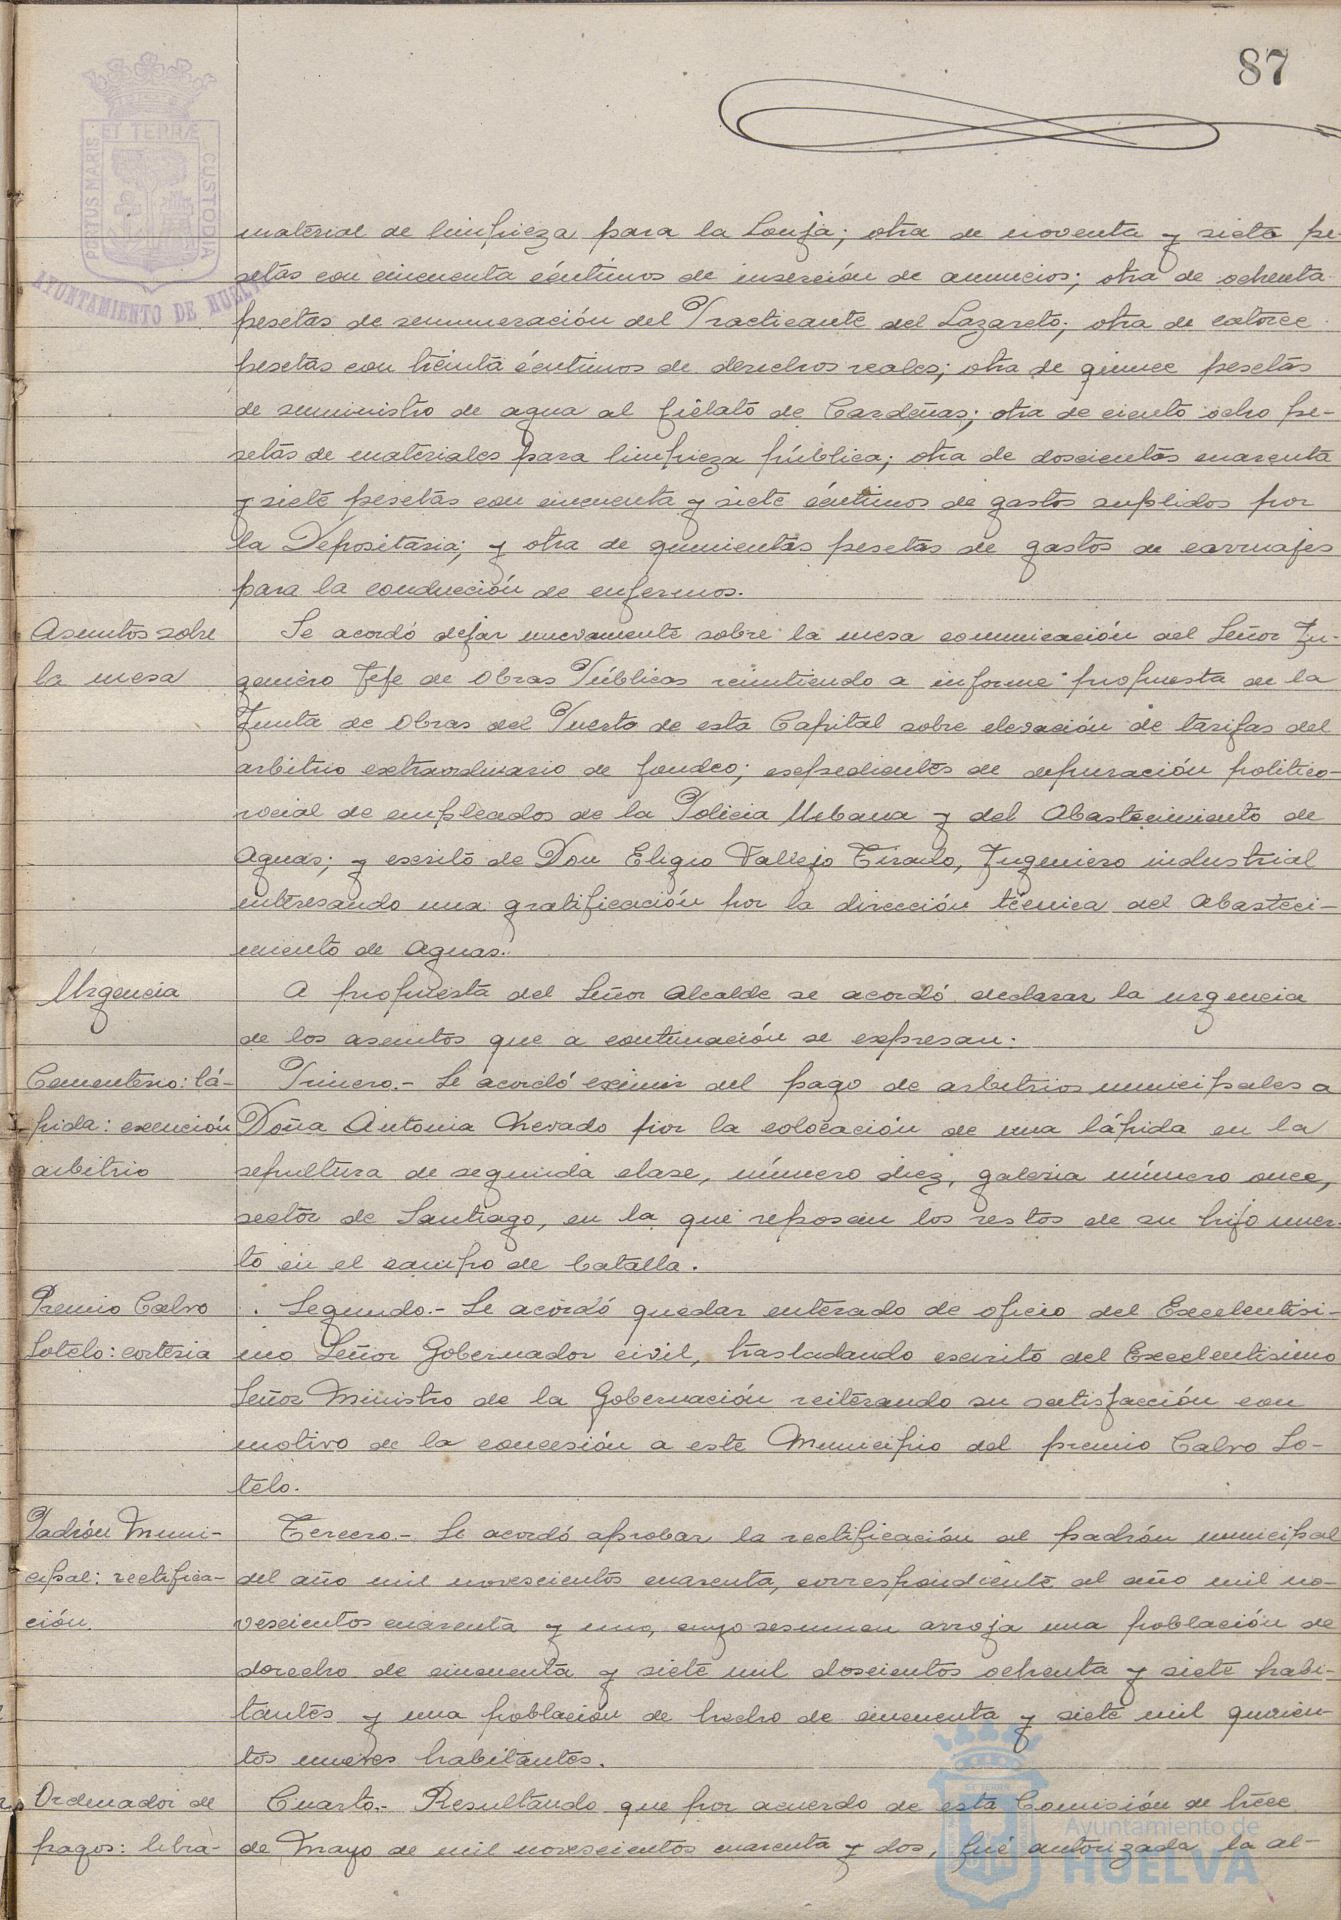 87
PORTUS MARIS ET TERRÆ CUSTODIA
AYUNTAMIENTO DE HUELVA
material de limpieza para la Lonja; otra de noventa y siete pe-
setas con cincuenta céntimos de inserción de anuncios; otra de ochenta
pesetas de remuneración del Practicante del Lazareto; otra de catorce
pesetas con treinta céntimos de derechos reales; otra de quince pesetas
de suministro de agua al fielato de Cardeñas; otra de ciento ocho pe-
setas de materiales para limpieza pública; otra de doscientas cuarenta
y siete pesetas con cincuenta y siete céntimos de gastos suplidos por
la Depositaria; y otra de quinientas pesetas de gastos de carruajes
para la conducción de enfermos.
Asuntos sobre
la mesa
Se acordó dejar nuevamente sobre la mesa comunicación del Señor In-
geniero Jefe de Obras Públicas remitiendo a informe propuesta de la
Junta de Obras del Puerto de esta Capital sobre elevación de tarifas del
arbitrio extraordinario de fondeo; expedientes de depuración politico-
social de empleados de la Policia Urbana y del Abastecimiento de
Aguas; y escrito de Don Eligio Vallejo Tirado, Ingeniero industrial
interesando una gratificación por la dirección técnica del Abasteci-
miento de Aguas.
Urgencia
A propuesta del Señor Alcalde se acordó declarar la urgencia
de los asuntos que a continuación se expresan.
Cementerio: lá-
pida: exención
arbitrio
Primero.- Se acordó eximir del pago de arbitrios municipales a
Doña Antonia Nevado por la colocación de una lápida en la
sepultura de segunda clase, número diez, galeria número once,
sector de Santiago, en la que reposan los restos de su hijo muer-
to en el campo de batalla.
Premio Calvo
Sotelo: cortesia
Segundo.- Se acordó quedar enterado de oficio del Excelentisi-
mo Señor Gobernador civil, trasladando escrito del Excelentisimo
Señor Ministro de la Gobernación reiterando su satisfacción con
motivo de la concesión a este Municipio del premio Calvo So-
telo.
Padrón Muni-
cipal: rectifica-
ción.
Tercero.- Se acordó aprobar la rectificación al padrón municipal
del año mil novescientos cuarenta, correspondiente al año mil no-
vescientos cuarenta y uno, cuyo resumen arroja una población de
derecho de cincuenta y siete mil doscientos ochenta y siete habi-
tantes y una población de hecho de cincuenta y siete mil quinien-
tos nueves habitantes.
Ordenador de
pagos: libra-
Cuarto.- Resultando que por acuerdo de esta Comisión de trece
de Mayo de mil novescientos cuarenta y dos, fué autorizada la al-
Ayuntamiento de
HUELVA